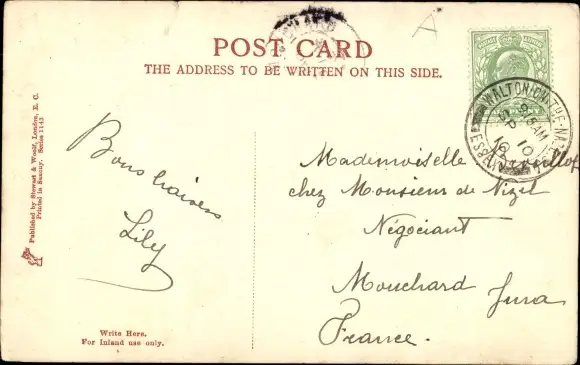 POST CARD
THE ADDRESS TO BE WRITTEN ON THIS SIDE.
A
WALTON-ON-THE-NAZE
9.15AM
SP 10
10
Published by Stewart & Woolf, London, E. C.
Printed in Saxony. Series 1143
Bons baisers
Lily
Mademoiselle
chez Monsieur de Nizel
Négociant
Mouchard Jura
France.
Write Here.
For Inland use only.